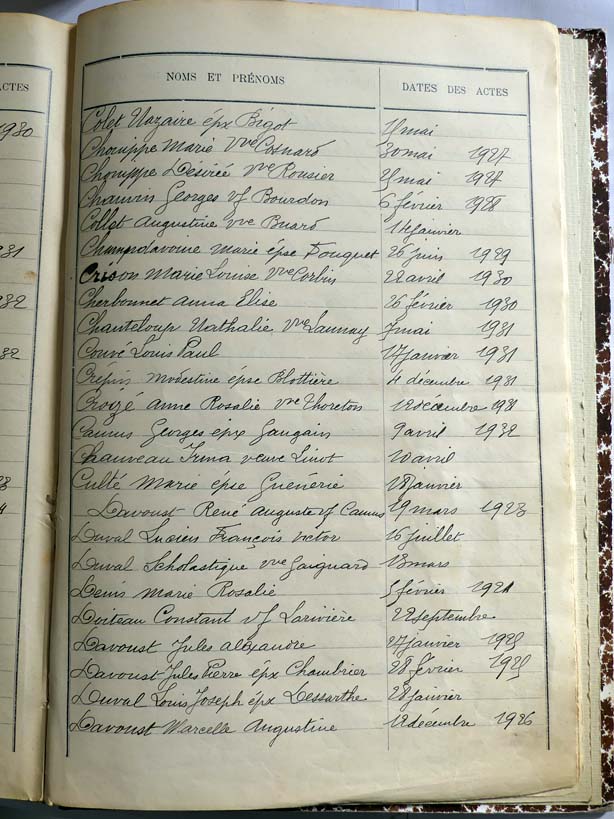 ACTES
1930
31
32
32
33
4
NOMS ET PRÉNOMS DATES DES ACTES
Colet Nazaire épx Bigot mai
Chouippe Marie Vve Cosnard 30 mai 1927
Chouippe Désirée Vve Rousier mai 1927
Chauvin Georges vf Bourdon 6 février 1928
Collet Augustine vve Buard 14 janvier
Champdavoine Marie épse Fouquet 26 juin 1929
Crison Marie Louise Vve Corbin 22 avril 1930
Cherbonnet Anna Elise 26 février 1930
Chanteloup Nathalie Vve Launay 7 mai 1931
Couvé Louis Paul 17 janvier 1931
Crépin Modestine épse Blottière 4 décembre 1931
Croizé Anne Rosalie vve Thoreton 12 décembre 1931
Camus Georges épx Gaugain 9 avril 1932
Chauveau Irma veuve Linot 10 avril
Culté Marie épse Guénérie 18 janvier
Davoust René Auguste vf Camus 19 mars 1923
Duval Lucien François Victor 16 juillet
Duval Scholastique vve Gaignard 13 mars
Denis Marie Rosalie 5 février 1924
Doiteau Constant vf Larivière 22 septembre
Davoust Jules Alexandre 27 janvier 1925
Davoust Jules Pierre épx Chambrier 28 février 1925
Duval Louis Joseph épx Dessarthe 28 janvier
Davoust Marcelle Augustine 12 décembre 1926